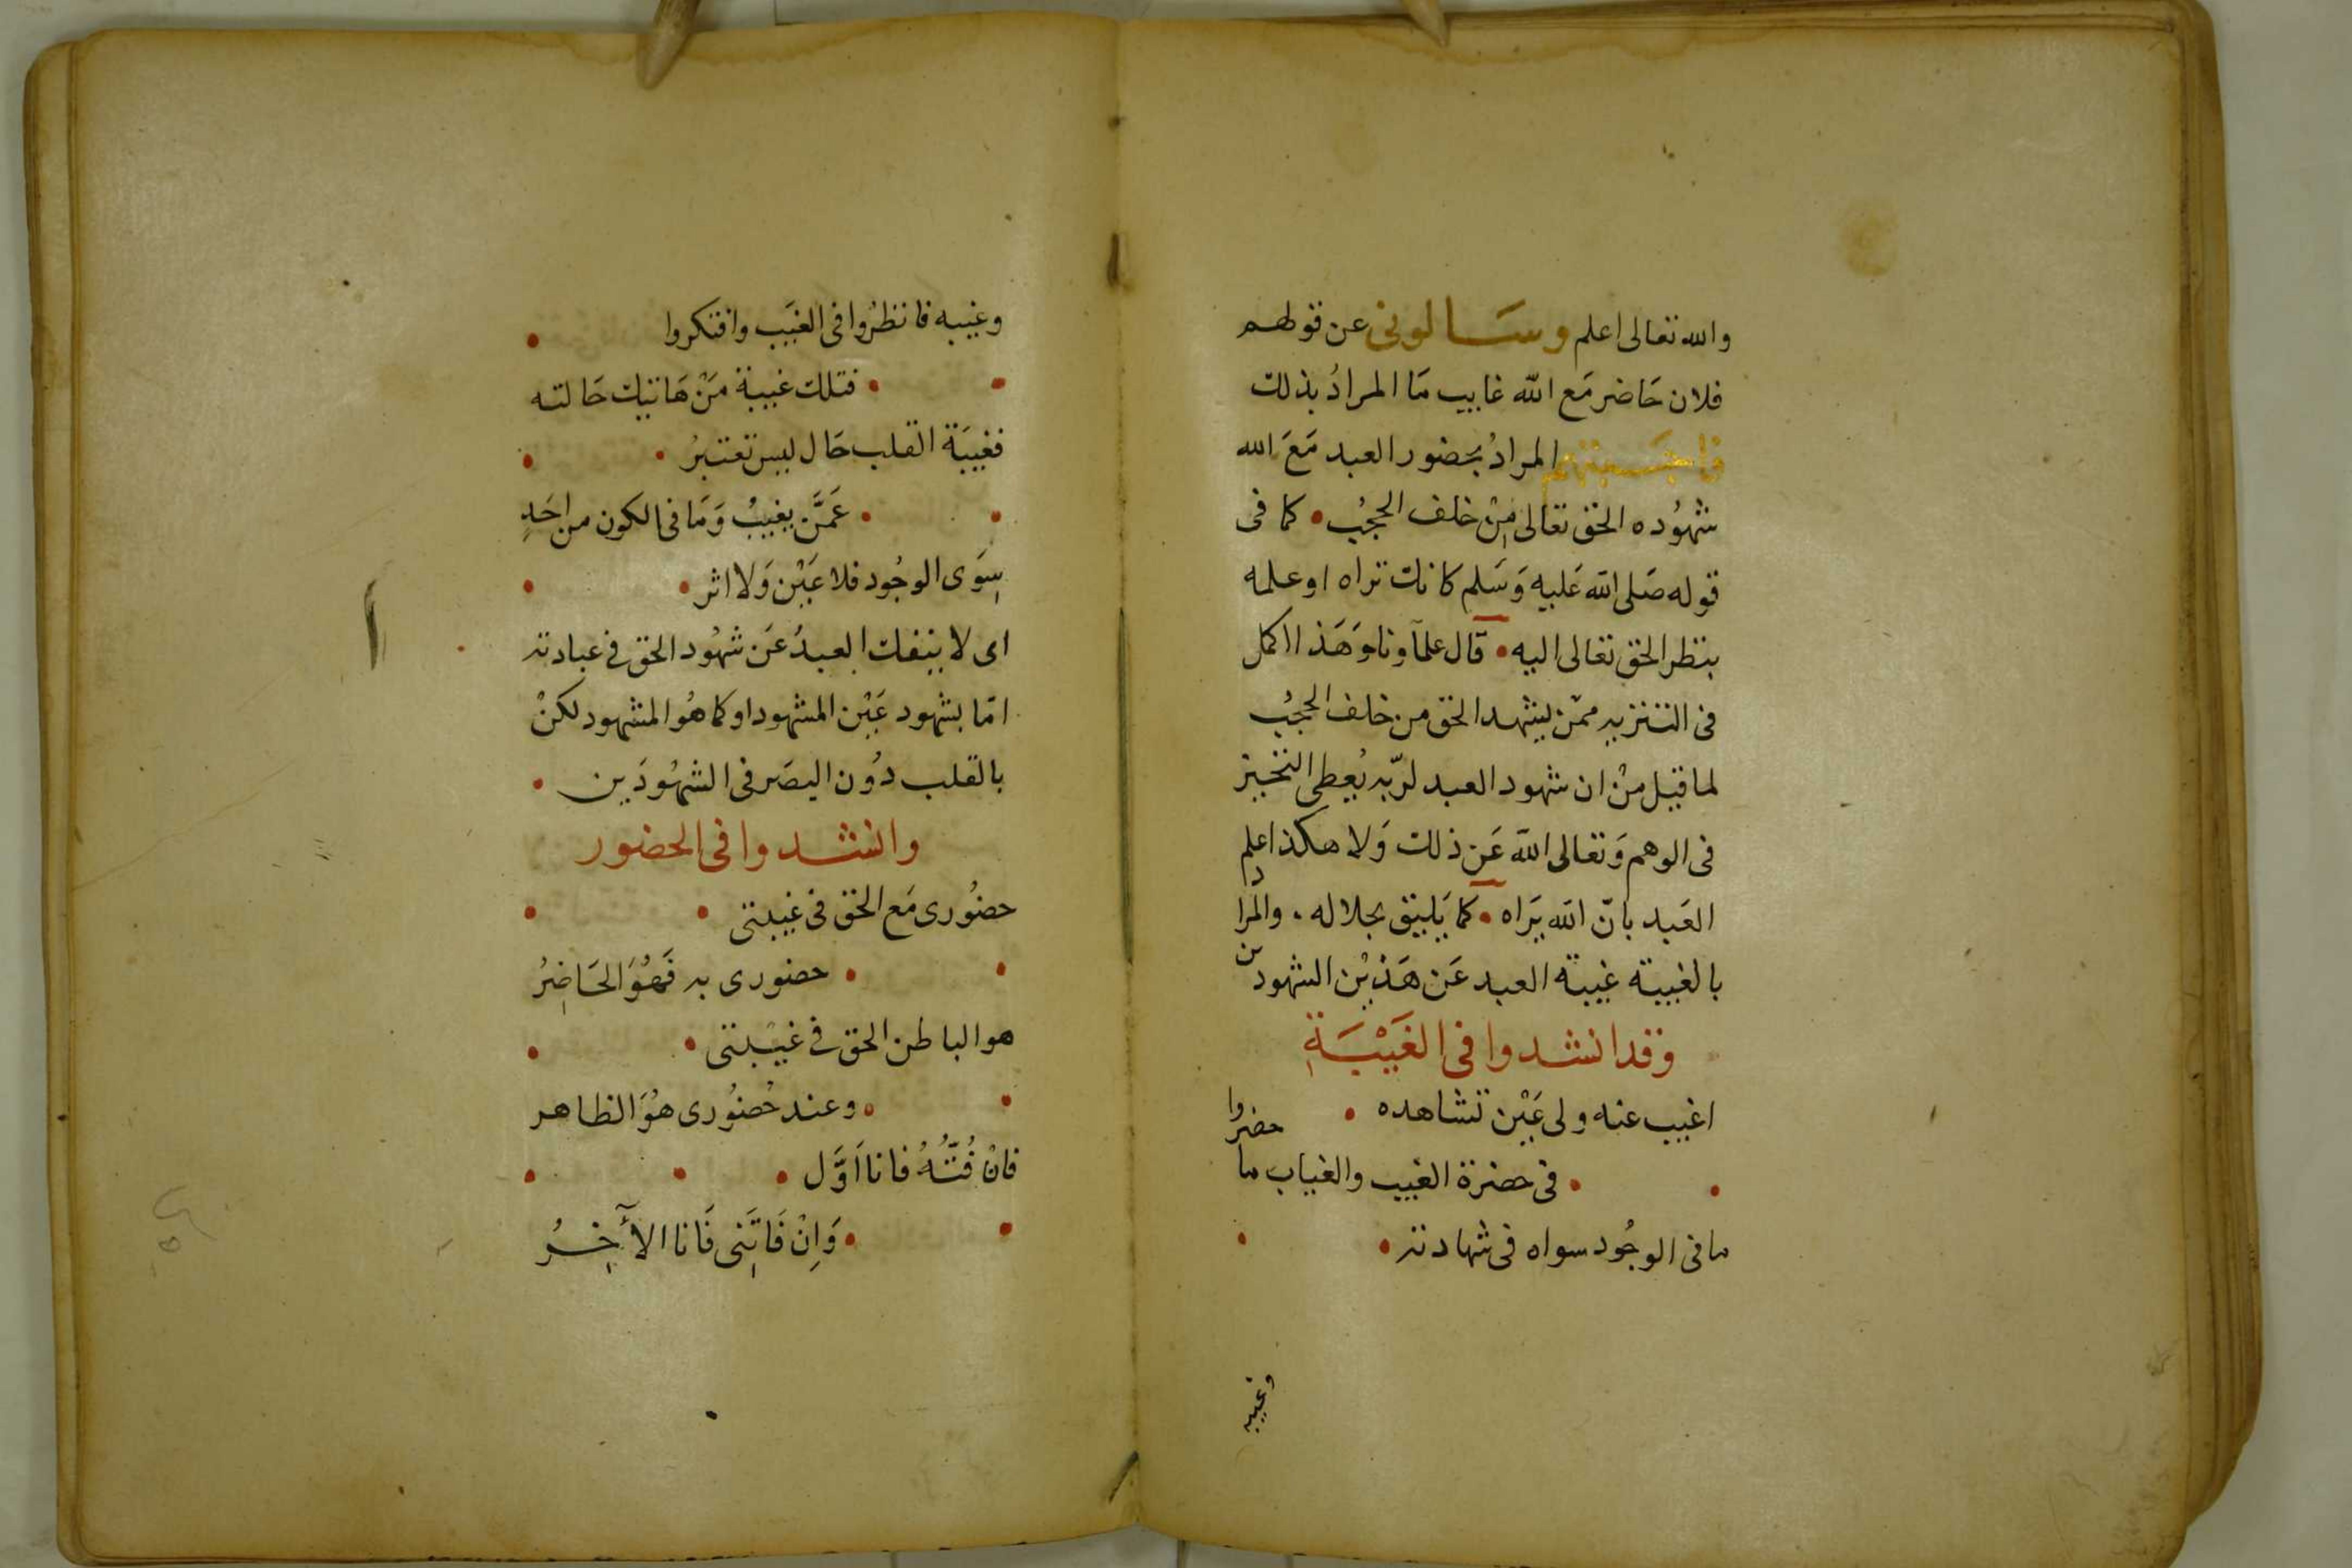 والله تعالى اعلم وسالونى عن قولهم
فلان حَاضر مَع الله غايب مَا المرادُ بذلك
فاجبتهم المرادُ بحضور العبد مَعَ الله
شهُوده الحق تعَالى مِنْ خلف الحجُب • كما فى
قوله صَلى الله عَليه وَسَلم كانك تراه او علمه
بنظر الحق تعالى اليه • قال علمآونا وَهَذا اكمل
فى التنزيه ممّن يشهد الحق من خلف الحجُب
لما قيل منْ ان شهود العبد لربّه يُعطى التحيز
فى الوهم وَتعالى الله عَن ذلك وَلا هكذا علم
العَبد بانّ الله يَراه • كما يَليق بجلاله . والمراد
بالغيبة غيبة العبد عَن هَذيْن الشهودين
وقد انشدوا فى الغَيْبَةِ
اغيب عنه ولى عَيْن تشاهده •
• فى حضرة الغيب والغياب ما حضروا
ما فى الوجُود سواه فى شهادته •
وغيبه
وغيبه فانظرُوا فى الغَيب وافتكروا
• فتلك غيبة مَنْ هَاتيك حَالته
فغيبَة القلب حَال ليس تعتبرُ •
• عَمَّن يغيبُ وَمَا فى الكون من احَدٍ
سِوَى الوجُود فلا عَيْن وَلا اثر •
اى لا ينفك العبدُ عَن شهُود الحق فى عبادته
امّا بشهود عَيْن المشهود او كما هُو المشهود لكنْ
بالقلب دُون البصَر فى الشهُودَين •
وانشدوا فى الحضور
حضُورى مَع الحق فى غيبتى •
• حضورى به فَهُوَ الحَاضِرُ
هو الباطن الحق فى غيبتى •
• وعند حُضُورى هُوَ الظاهر
فانْ فُتُّهُ فانا اَوَّل •
• وَاِنْ فَاتَنِى فَانا الآخِرُ